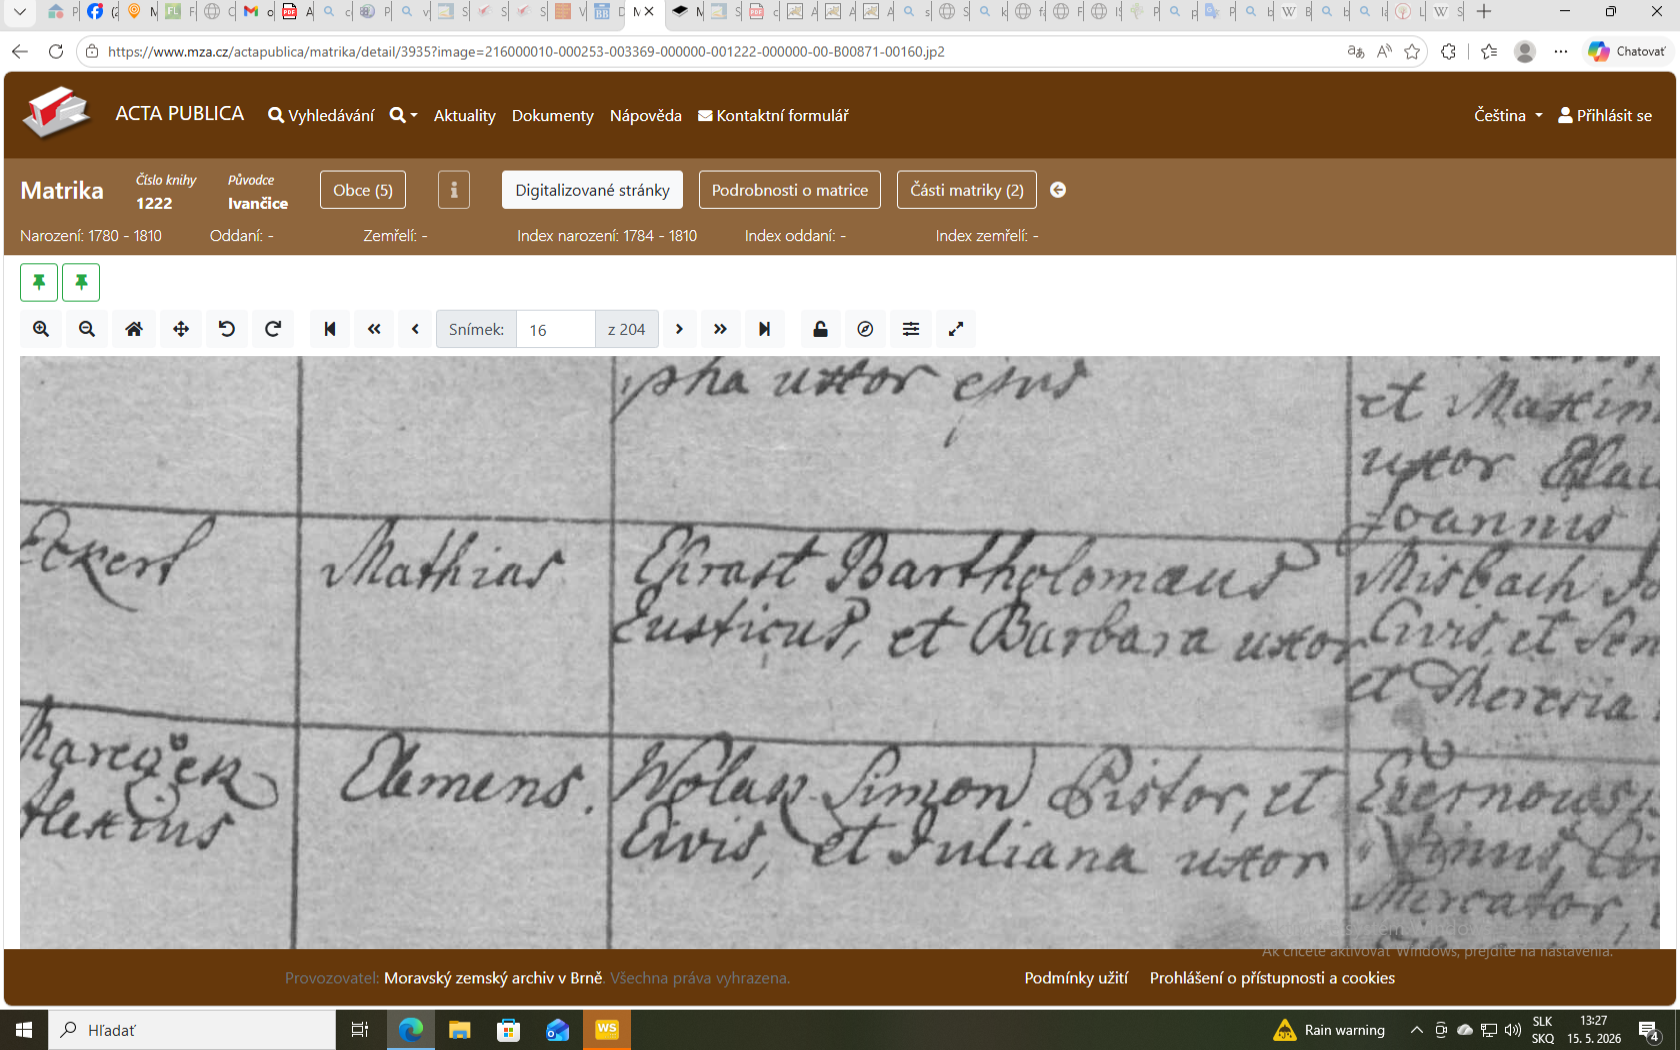 https://www.mza.cz/actapublica/matrika/detail/3935?image=216000010-000253-003369-000000-001222-000000-00-B00871-00160.jp2
Chatovať
ACTA PUBLICA
Vyhledávání
Aktuality
Dokumenty
Nápověda
Kontaktní formulář
Čeština
Přihlásit se
Matrika
Číslo knihy
1222
Původce
Ivančice
Obce (5)
Digitalizované stránky
Podrobnosti o matrice
Části matriky (2)
Narození: 1780 - 1810
Oddaní: -
Zemřelí: -
Index narození: 1784 - 1810
Index oddaní: -
Index zemřelí: -
Snímek:
16
z 204
uxor ejus
et Maxim
uxor
Joannis
Eckert
Mathias
Bartholomæus
et Barbara uxor
Misbach Jo
Civis, et Sen
et Theresia
Clemens.
Simon Pistor, et
Civis, et Juliana uxor
Mercator,
Ak chcete aktivovať Windows, prejdite na nastavenia.
Provozovatel: Moravský zemský archiv v Brně. Všechna práva vyhrazena.
Podmínky užití
Prohlášení o přístupnosti a cookies
Hľadať
WS
Rain warning
SLK
SKQ
13:27
15. 5. 2026
4